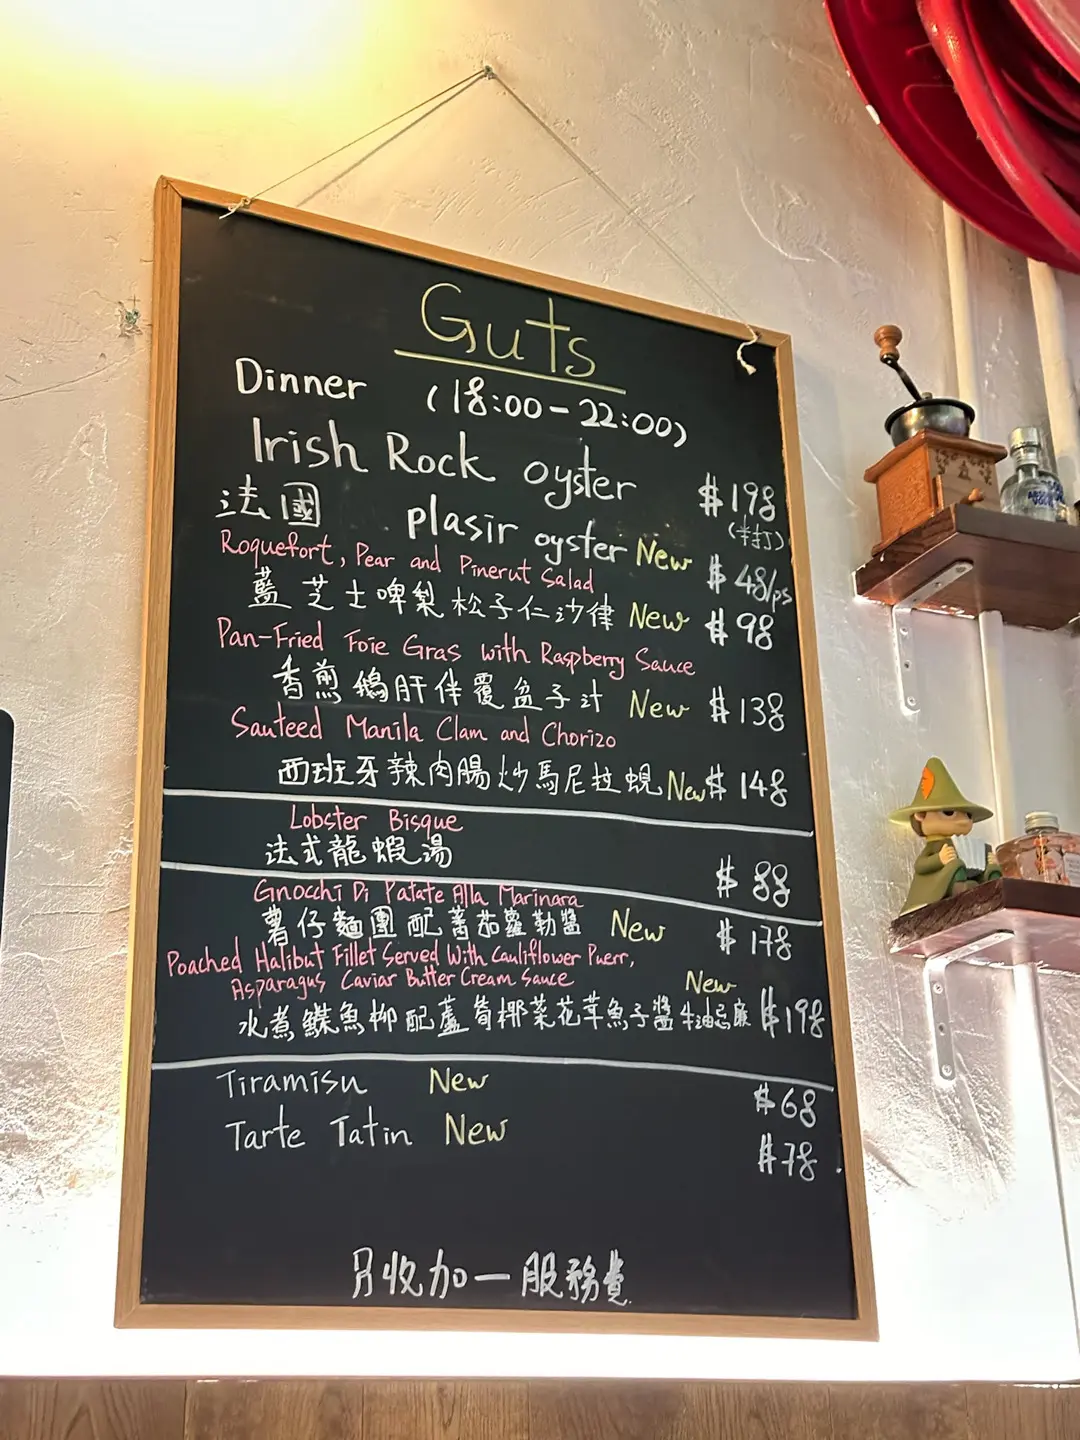 Guts
Dinner (18:00-22:00)
Irish Rock oyster $198
(半打)
法國 plasir oyster New $48/ps
Roquefort, Pear and Pinerut Salad
藍芝士啤梨松子仁沙律 New $98
Pan-Fried Foie Gras with Raspberry Sauce
香煎鵝肝伴覆盆子汁 New $138
Sauteed Manila Clam and Chorizo
西班牙辣肉腸炒馬尼拉蜆 New $148
Lobster Bisque
法式龍蝦湯 $88
Gnocchi Di Patate Alla Marinara
薯仔麵團配蕃茄蘿勒醬 New $178
Poached Halibut Fillet Served With Cauliflower Puerr,
Asparagus Caviar Butter Cream Sauce New
水煮鰈魚柳配蘆筍椰菜花苹魚子醬牛油忌廉 $198
Tiramisu New $68
Tarte Tatin New $78
另收加一服務費